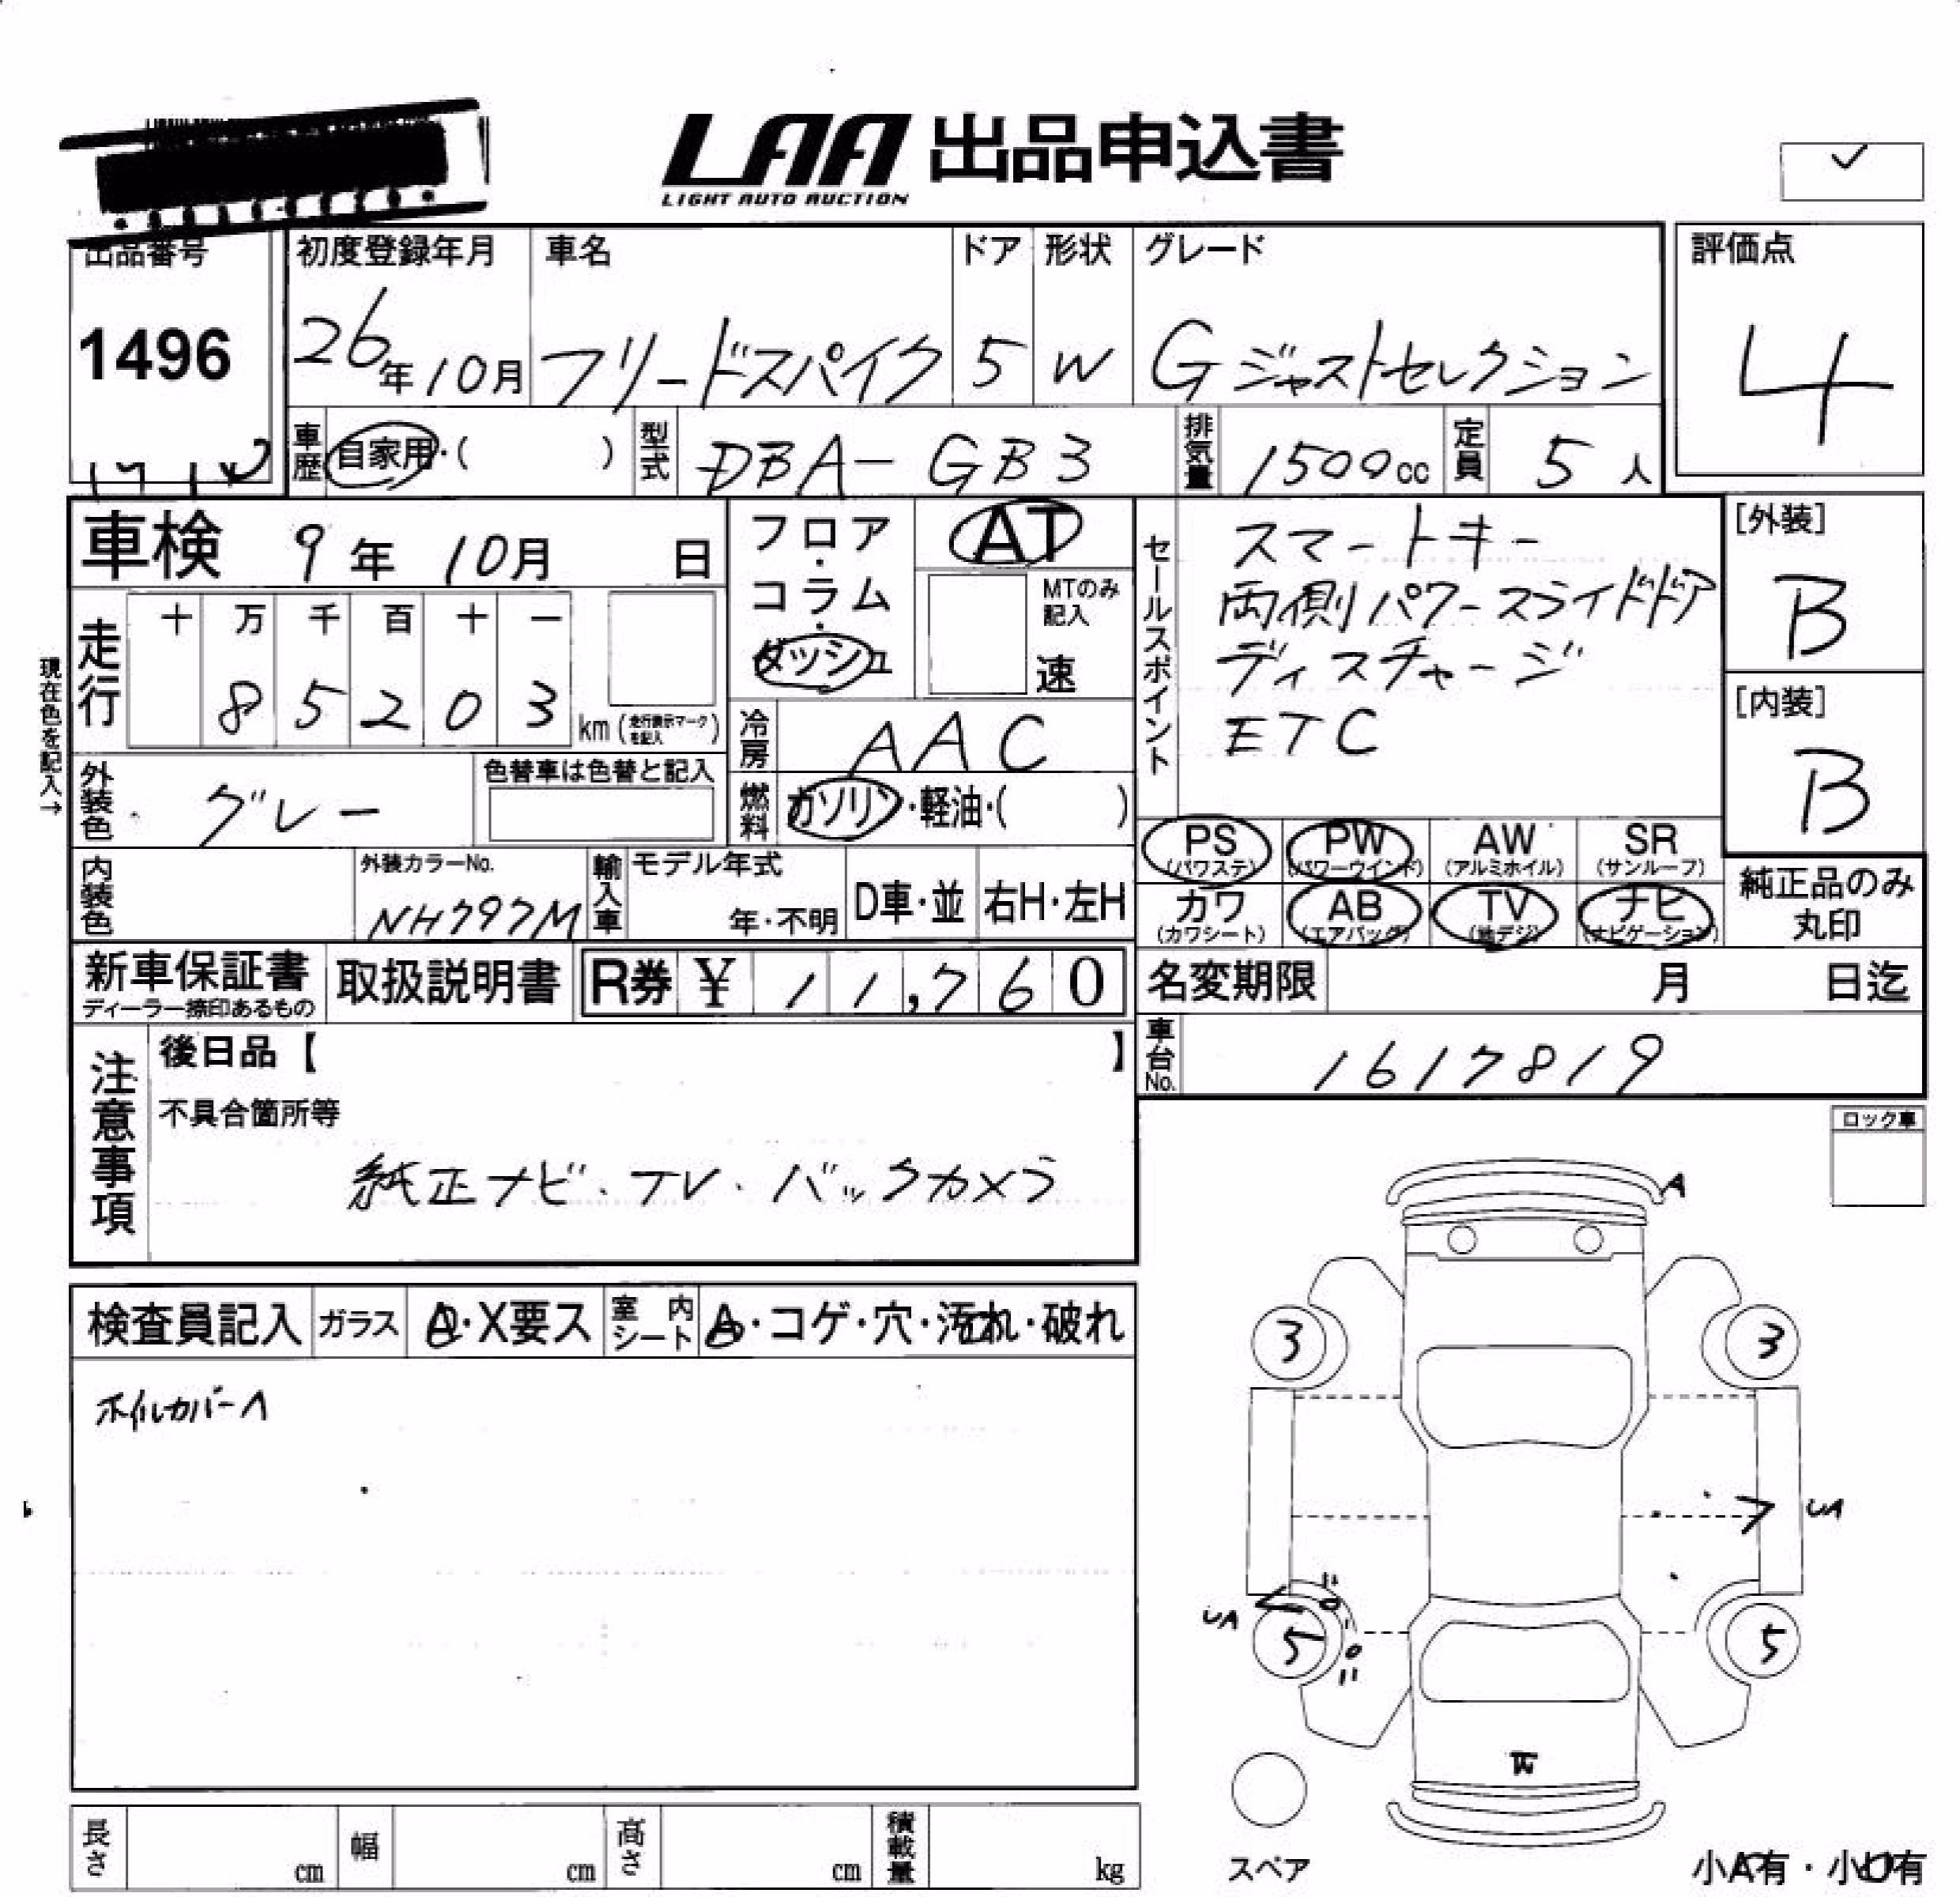 LAA 出品申込書
LIGHT AUTO AUCTION
出品番号
1496
初度登録年月
26年10月
車名
フリードスパイク
ドア
5
形状
W
グレード
Gジャストセレクション
評価点
4
車歴
自家用・( )
型式
DBA-GB3
排気量
1500cc
定員
5人
車検 9年 10月 日
フロア・コラム・ダッシュ
AT
MTのみ記入
速
セールスポイント
スマートキー
両側パワースライドドア
ディスチャージ
ETC
[外装]
B
[内装]
B
現在色を記入→
走行
十 万 千 百 十 一
8 5 2 0 3 km (走行表示マークを記入)
冷房
AAC
外装色
グレー
色替車は色替と記入
燃料
ガソリン・軽油・( )
PS (パワステ)
PW (パワーウインド)
AW (アルミホイル)
SR (サンルーフ)
カワ (カワシート)
AB (エアバッグ)
TV (地デジ)
ナビ (ナビゲーション)
純正品のみ丸印
内装色
外装カラーNo.
NH797M
輸入車
モデル年式
年・不明
D車・並
右H・左H
新車保証書
ディーラー捺印あるもの
取扱説明書
R券 ¥ 11,760
名変期限 月 日迄
車台No.
1617819
注意事項
後日品【 】
不具合箇所等
純正ナビ・TV・バックカメラ
ロック車
検査員記入
ガラス
A・X要ス
室内シート
A・コゲ・穴・汚れ・破れ
ホイルカバーA
A
3 3
UA
UA
5 5
スペア
長さ cm
幅 cm
高さ cm
積載量 kg
小A有・小U有